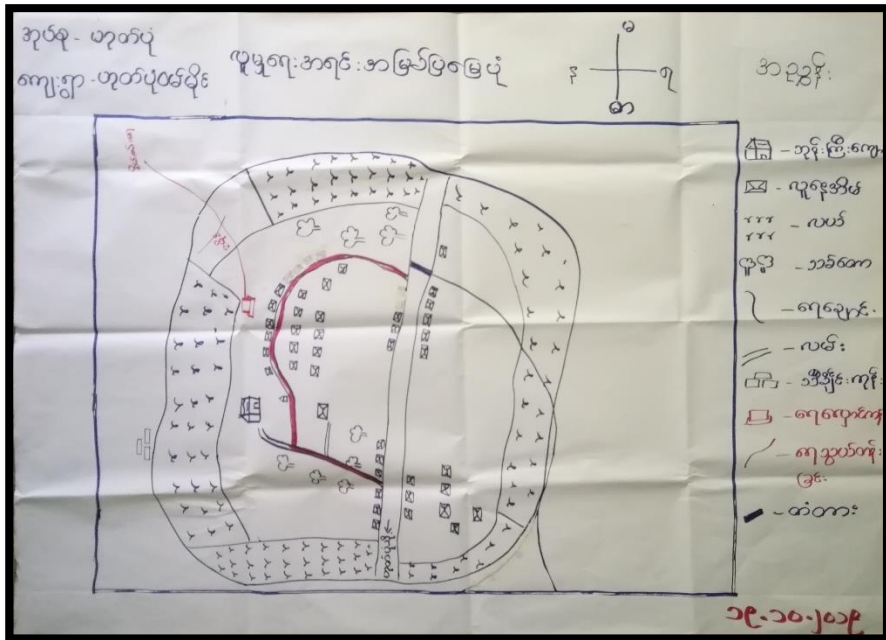 အုပ်စု - ဟုတ်ပုံ
ကျေးရွာ - ဟုတ်ပုံ
လူမှုရေးအရင်းအမြစ်ပြမြေပုံ
မ
န
ရ
တ
အညွှန်း
- ဘုန်းကြီးကျော
- လူနေအိမ်
- လယ်
- သစ်တော
- ရေချောင်း
- လမ်း
- သင်္ချိုင်းကုန်း
- ရေလှောင်ကန်
- ရေသွယ်တန်း
ခြင်း
- တံတား
၁၉-၁၀-၂၀၁၉